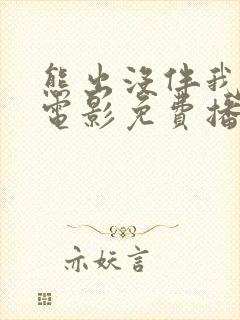 熊出没伴我
电影免费播
亦妖言